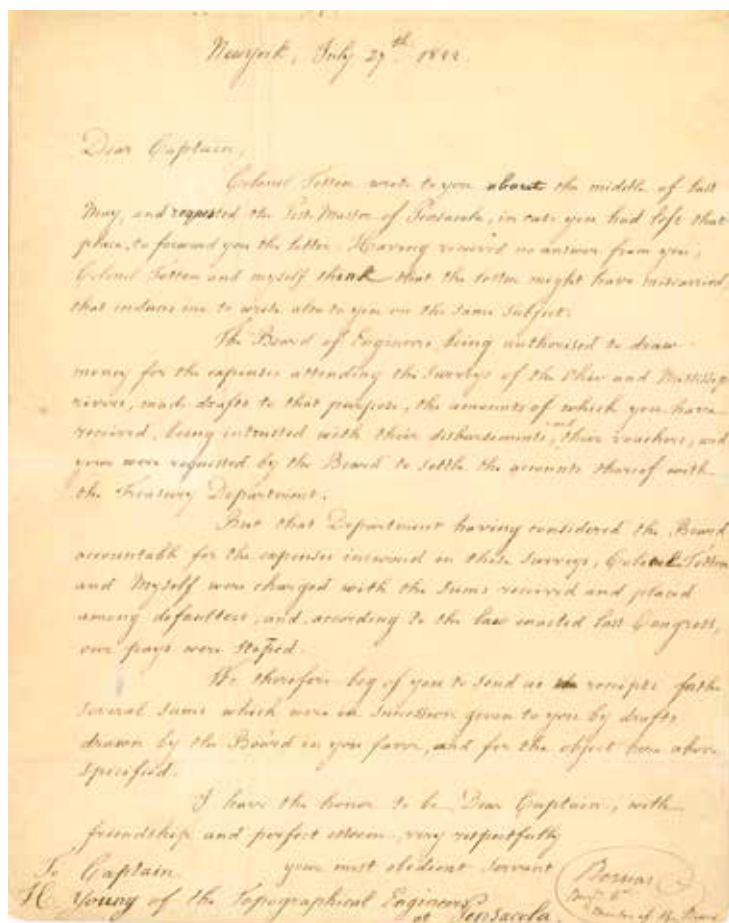 New york, July 27th 1822.
Dear Captain,
Colonel Totten wrote to you about the middle of last
May, and requested the Post Master of Pensacola, in case you had left that
place, to forward you the letter. Having received no answer from you,
Colonel Totten and myself think that the letter might have miscarried,
that induces me to write also to you on the same subject.
The Board of Engineers, being authorised to draw
money for the expenses attending the surveys of the Ohio and Mississip
rivers, made drafts to that purpose, the amounts of which you have
received, being intrusted with their disbursements, and their vouchers, and
your were requested by the Board to settle the accounts thereof with
the Treasury Department.
But that Department having considered the Board
accountable for the expenses incurred in these surveys, Colonel Totten
and Myself were charged with the sums received and placed
among defaulters, and, according to the law enacted last Congress,
our pays were stopped.
We therefore beg of you to send us receipts for the
several sums which were in succession given to you by drafts
drawn by the Board in you favor, and for the object here above
specified.
I have the honor to be, Dear Captain, with
friendship and perfect esteem, very respectfully
your most obedient servant
To Captain
H Young of the Topographical Engineers
at Pensacola.
Bernard